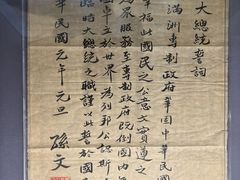 大總統誓詞
滿洲專制政府鞏固中華民國
幸福此國民之公意文實遵之
為眾服務至專制政府既倒國內
國卓立於世界為列邦公認斯
臨時大總統之職謹以此誓於國
華民國元年元旦 孫文